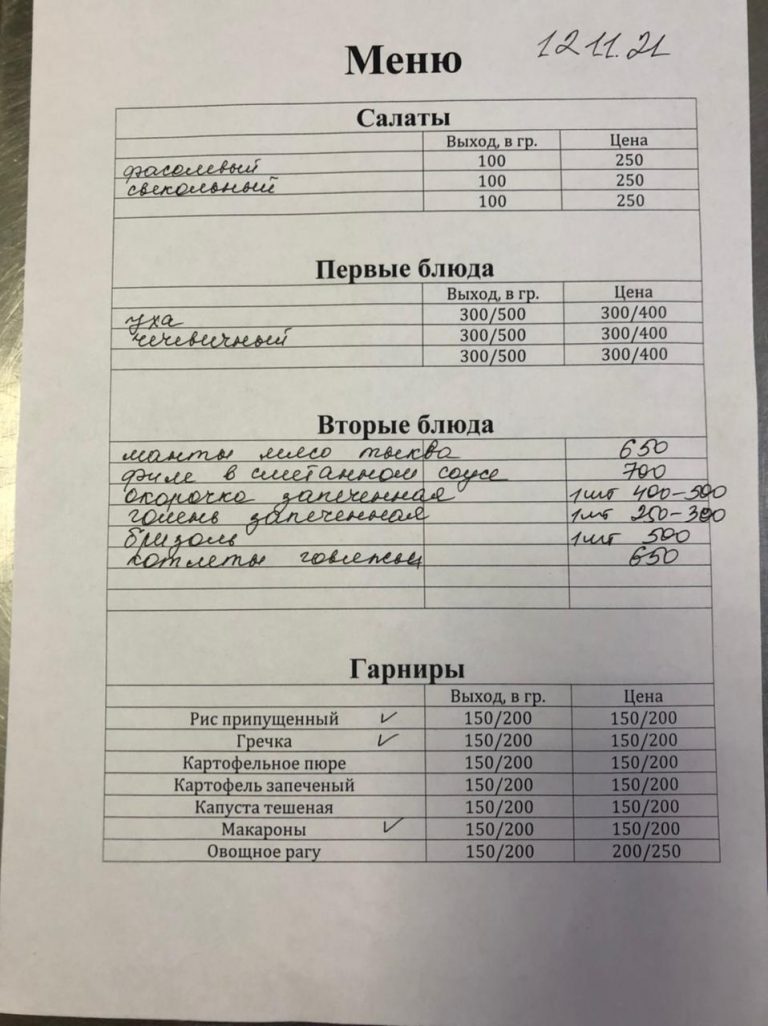 Меню 12.11.21
Салаты
Выход, в гр. Цена
фасолевый 100 250
свекольный 100 250
100 250
Первые блюда
Выход, в гр. Цена
уха 300/500 300/400
чечевичный 300/500 300/400
300/500 300/400
Вторые блюда
манты мясо тыква 650
филе в сметанном соусе 700
окорочка запеченная 1 шт 400-500
голень запеченная 1 шт 250-300
бризоль 1 шт 500
котлеты говяжьи 650
Гарниры
Выход, в гр. Цена
Рис припущенный ✓ 150/200 150/200
Гречка ✓ 150/200 150/200
Картофельное пюре 150/200 150/200
Картофель запеченый 150/200 150/200
Капуста тешеная 150/200 150/200
Макароны ✓ 150/200 150/200
Овощное рагу 150/200 200/250